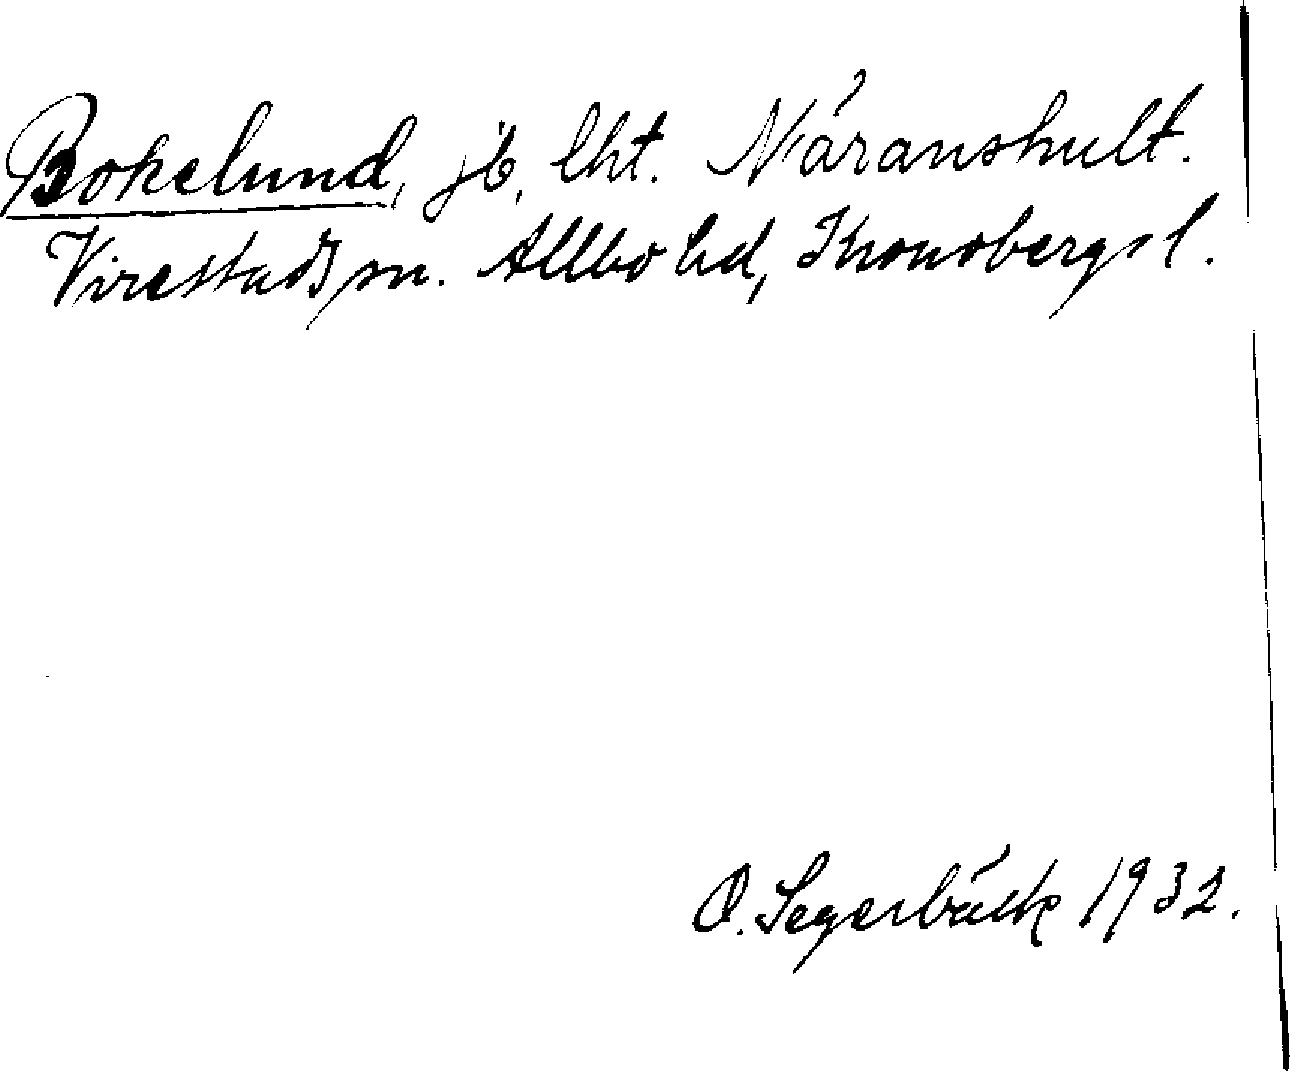 Bokelund, jb, lht. Näranshult.
Virestads sn. Allbo hd, Kronobergs l.
O. Segerbäck 1932.